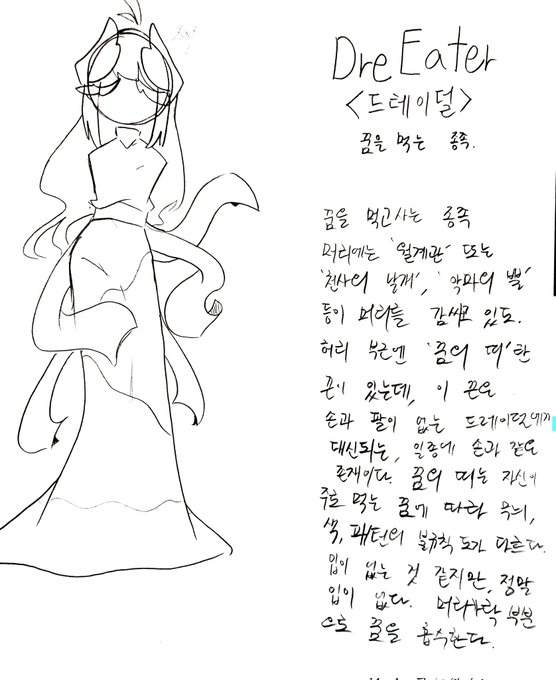 Dre Eater
<드테이덜>
꿈을 먹는 종족.
꿈을 먹고사는 종족
머리에는 '월계관' 또는
'천사의 날개', '악마의 뿔'
등이 머리를 감싸고 있도.
허리 부근엔 '꿈의 띠'란
끈이 있는데, 이 끈은
손과 팔이 없는 드레이덜에게
대신되는, 일종에 손과 같은
존재이다. 꿈의 띠는 자신이
주로 먹는 꿈에 따라 무늬,
색, 패턴의 불규칙 도가 다르다.
입이 없는 것 같지만, 정말
입이 없다. 머리카락 부분
으로 꿈을 흡수한다.